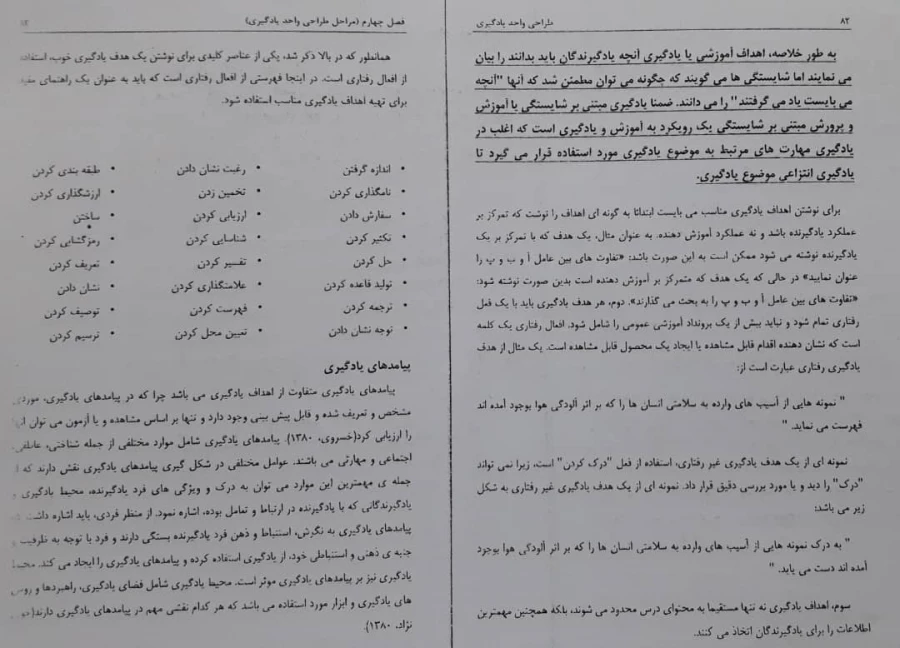 ۸۲
طراحی واحد یادگیری
به طور خلاصه، اهداف آموزشی یا یادگیری آنچه یادگیرندگان باید بدانند را بیان
می نمایند اما شایستگی ها می گویند که چگونه می توان مطمئن شد که آنها "آنچه
می بایست یاد می گرفتند" را می دانند. ضمنا یادگیری مبتنی بر شایستگی یا آموزش
و پرورش مبتنی بر شایستگی یک رویکرد به آموزش و یادگیری است که اغلب در
یادگیری مهارت های مرتبط به موضوع یادگیری مورد استفاده قرار می گیرد تا
یادگیری انتزاعی موضوع یادگیری.
برای نوشتن اهداف یادگیری مناسب می بایست ابتدائا به گونه ای اهداف را نوشت که تمرکز بر
عملکرد یادگیرنده باشد و نه عملکرد آموزش دهنده. به عنوان مثال، یک هدف که با تمرکز بر یک
یادگیرنده نوشته می شود ممکن است به این صورت باشد: «تفاوت های بین عامل أ و ب و پ را
عنوان نمایید» در حالی که یک هدف که متمرکز بر آموزش دهنده است بدین صورت نوشته شود:
«تفاوت های بین عامل أ و ب و پ را به بحث می گذارند». دوم، هر هدف یادگیری باید با یک فعل
رفتاری تمام شود و نباید بیش از یک برونداد آموزشی عمومی را شامل شود. افعال رفتاری یک کلمه
است که نشان دهنده اقدام قابل مشاهده یا ایجاد یک محصول قابل مشاهده است. یک مثال از هدف
یادگیری رفتاری عبارت است از:
" نمونه هایی از آسیب های وارده به سلامتی انسان ها را که بر اثر آلودگی هوا بوجود آمده اند
فهرست می نماید. "
نمونه ای از یک هدف یادگیری غیر رفتاری، استفاده از فعل "درک کردن" است، زیرا نمی تواند
"درک" را دید و یا مورد بررسی دقیق قرار داد. نمونه ای از یک هدف یادگیری غیر رفتاری به شکل
زیر می باشد:
" به درک نمونه هایی از آسیب های وارده به سلامتی انسان ها را که بر اثر آلودگی هوا بوجود
آمده اند دست می یابد. "
سوم، اهداف یادگیری نه تنها مستقیما به محتوای درس محدود می شوند، بلکه همچنین مهمترین
اطلاعات را برای یادگیرندگان اتخاذ می کنند.
فصل چهارم (مراحل طراحی واحد یادگیری)
همانطور که در بالا ذکر شد، یکی از عناصر کلیدی برای نوشتن یک هدف یادگیری خوب، استفاده
از افعال رفتاری است. در اینجا فهرستی از افعال رفتاری است که باید به عنوان یک راهنمای مفید
برای تهیه اهداف یادگیری مناسب استفاده شود.
• اندازه گرفتن • رغبت نشان دادن • طبقه بندی کردن
• نامگذاری کردن • تخمین زدن • ارزشگذاری کردن
• سفارش دادن • ارزیابی کردن • ساختن
• تکثیر کردن • شناسایی کردن • رمزگشایی کردن
• حل کردن • تفسیر کردن • تعریف کردن
• تولید قاعده کردن • علامتگذاری کردن • نشان دادن
• ترجمه کردن • فهرست کردن • توصیف کردن
• توجه نشان دادن • تعیین محل کردن • ترسیم کردن
پیامدهای یادگیری
پیامدهای یادگیری متفاوت از اهداف یادگیری می باشد چرا که در پیامدهای یادگیری، موردی
مشخص و تعریف شده و قابل پیش بینی وجود دارد و تنها بر اساس مشاهده و یا آزمون می توان آنها
را ارزیابی کرد(خسروی، ۱۳۸۰). پیامدهای یادگیری شامل موارد مختلفی از جمله شناختی، عاطفی،
اجتماعی و مهارتی می باشند. عوامل مختلفی در شکل گیری پیامدهای یادگیری نقش دارند که از
جمله ی مهمترین این موارد می توان به درک و ویژگی های فرد یادگیرنده، محیط یادگیری و
یادگیرندگانی که با یادگیرنده در ارتباط و تعامل بوده، اشاره نمود. از منظر فردی، باید اشاره داشت که
پیامدهای یادگیری به نگرش، استنباط و ذهن فرد یادگیرنده بستگی دارند و فرد با توجه به ظرفیت و
جنبه ی ذهنی و استنباطی خود، از یادگیری استفاده کرده و پیامدهای یادگیری را ایجاد می کند. محیط
یادگیری نیز بر پیامدهای یادگیری موثر است. محیط یادگیری شامل فضای یادگیری، راهبردها و روش
های یادگیری و ابزار مورد استفاده می باشد که هر کدام نقشی مهم در پیامدهای یادگیری دارند(
نژاد، ۱۳۸۰).